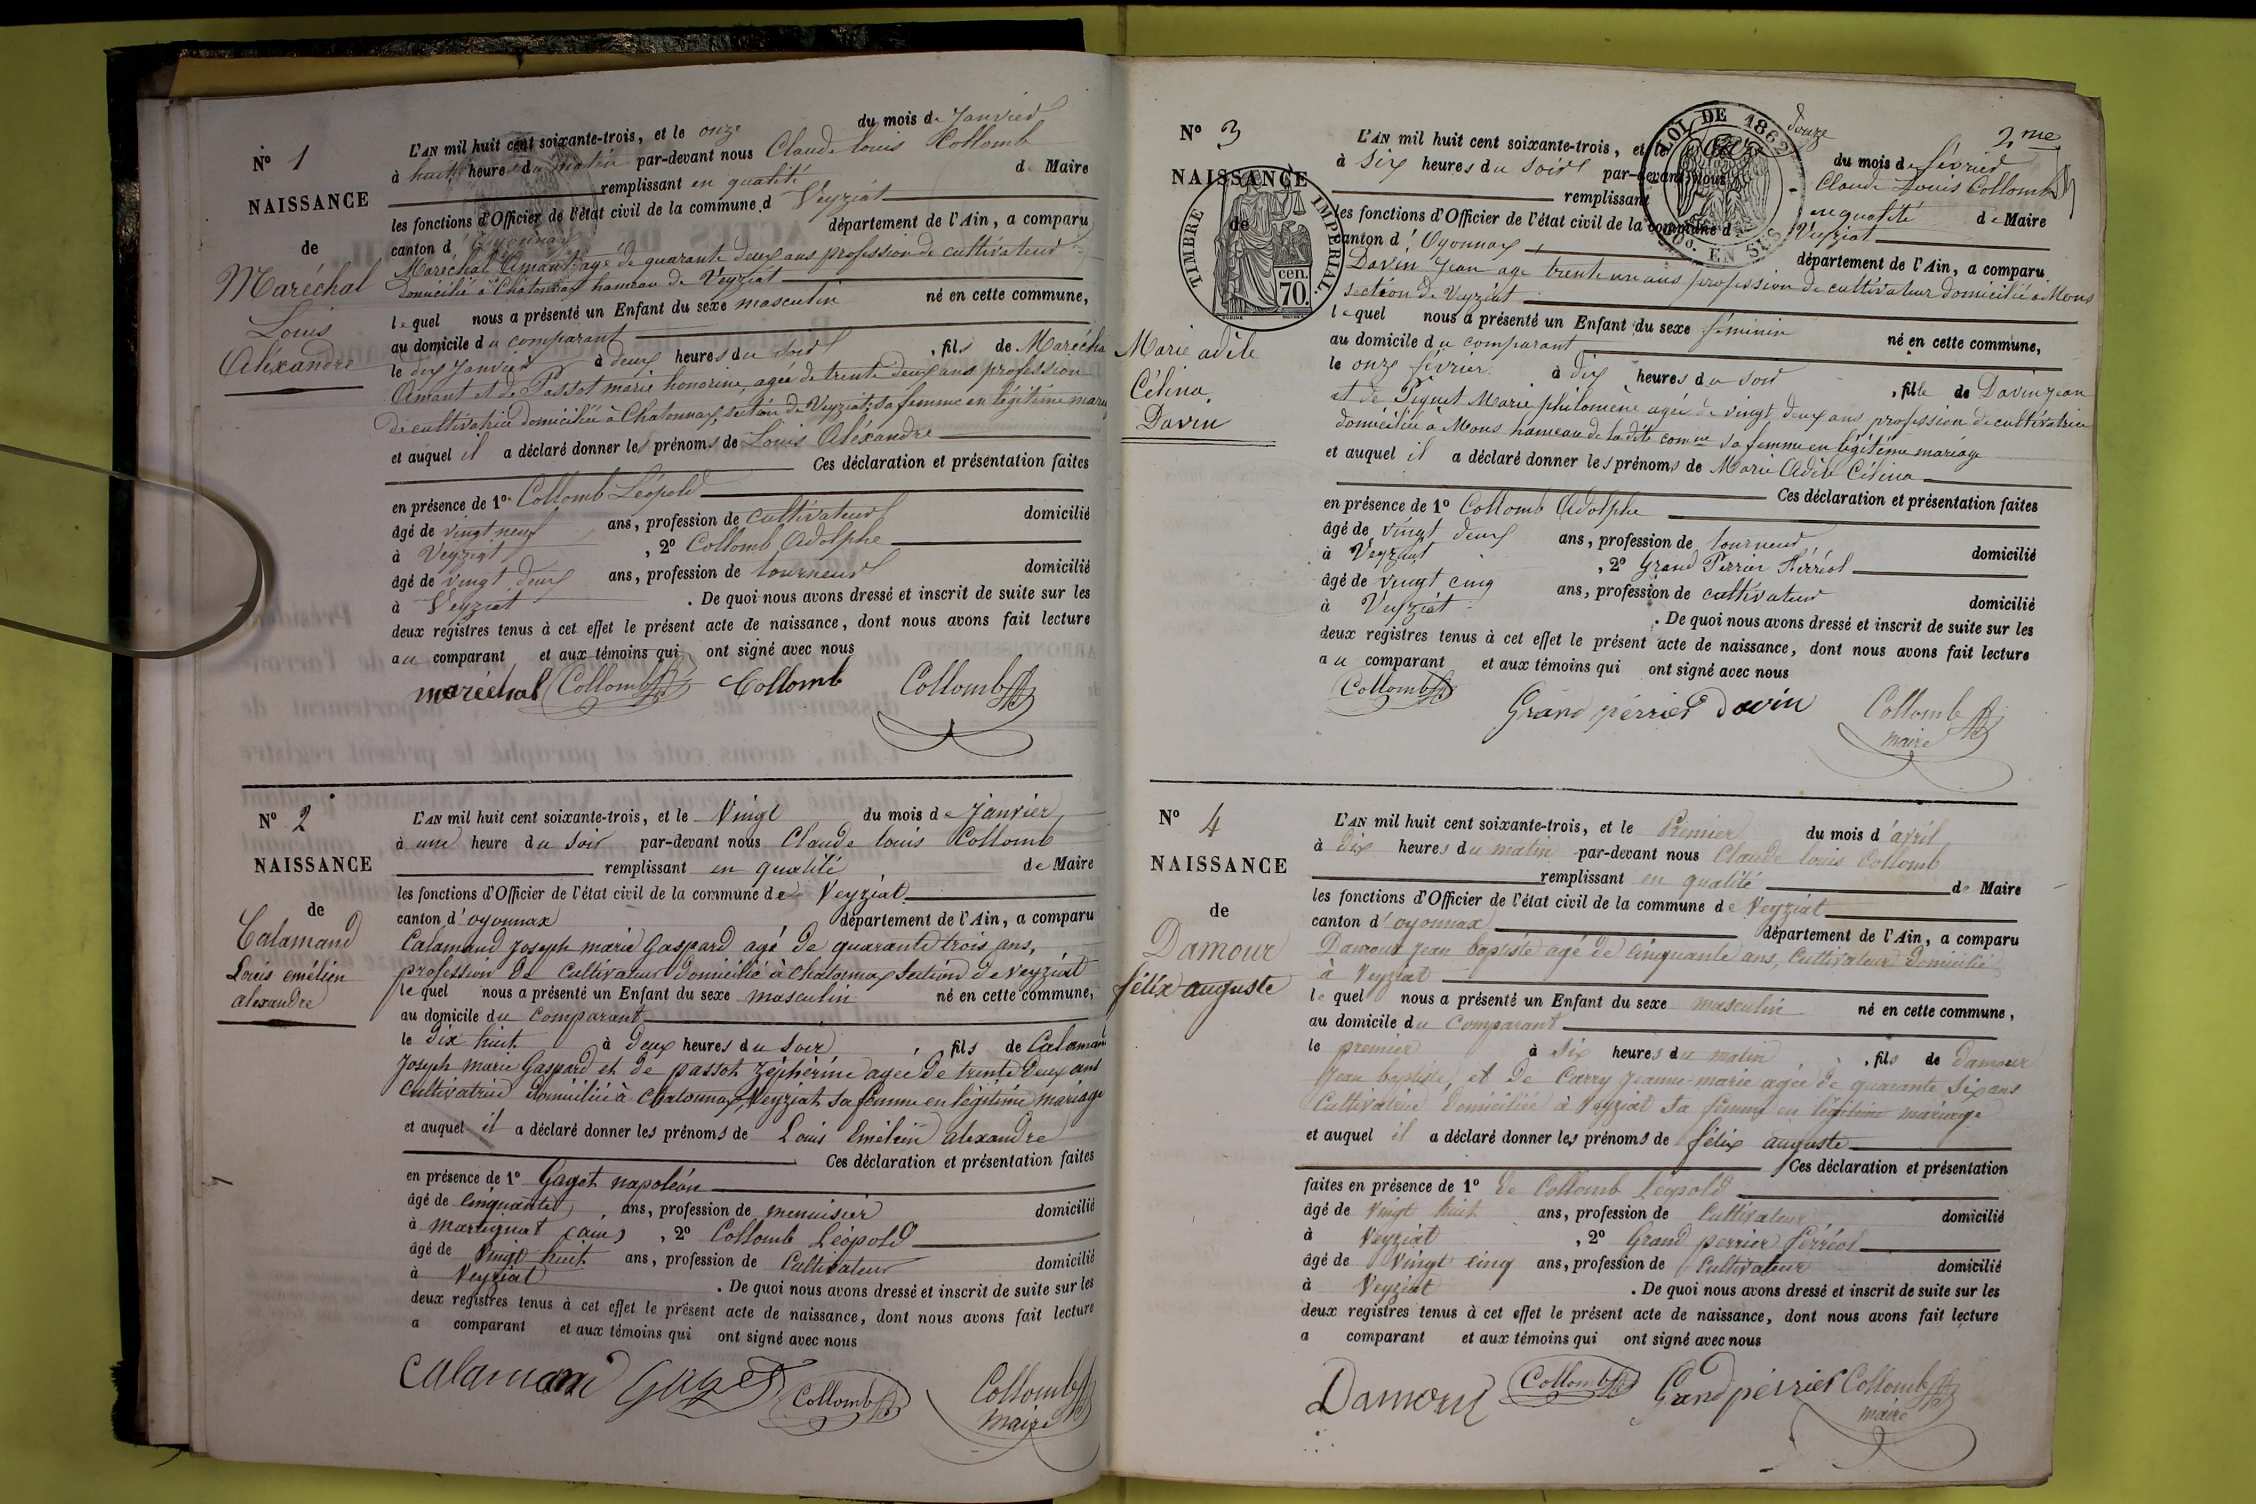 N° 1
NAISSANCE
de
Maréchal
Louis
Aléxandre
L'AN mil huit cent soixante-trois, et le onze du mois de Janvier
à huit heures du matin par-devant nous Claude Louis Collomb
remplissant en qualité de Maire
les fonctions d'Officier de l'état civil de la commune d Veyziat
canton d'Oyonnax département de l'Ain, a comparu
Maréchal Amant agé de quarante deux ans profession de cultivateur
domicilié à Chatonnax hameau de Veyziat
lequel nous a présenté un Enfant du sexe masculin né en cette commune,
au domicile du comparant
le dix Janvier à deux heures du soir, fils de Maréchal
Amant et de Passot marie honorine, agée de trente deux ans profession
de cultivatrice domiciliée à Chatonnax, section de Veyziat, sa femme en légitime mariage
et auquel il a déclaré donner les prénoms de Louis Aléxandre
Ces déclaration et présentation faites
en présence de 1° Collomb Léopold
âgé de vingt neuf ans, profession de cultivateur domicilié
à Veyziat, 2° Collomb Adolphe
âgé de vingt deux ans, profession de tourneur domicilié
à Veyziat. De quoi nous avons dressé et inscrit de suite sur les
deux registres tenus à cet effet le présent acte de naissance, dont nous avons fait lecture
au comparant et aux témoins qui ont signé avec nous
maréchal Collomb Collomb Collomb
N° 2
NAISSANCE
de
Calamand
Louis emélien
alexandre
L'AN mil huit cent soixante-trois, et le Vingt du mois de Janvier
à une heure du Soir par-devant nous Claude louis Collomb
remplissant en qualité de Maire
les fonctions d'Officier de l'état civil de la commune de Veyziat
canton d'oyonnax département de l'Ain, a comparu
Calamand Joseph marie Gaspard agé de quarante trois ans,
profession de Cultivateur domicilié à Chatonnax Section de Veyziat
lequel nous a présenté un Enfant du sexe masculin né en cette commune,
au domicile du Comparant
le dix huit à deux heures du Soir, fils de Calamand
Joseph marie Gaspard et de passot Zéphérine agée de trente deux ans
Cultivatrice domiciliée à Chatonnax, Veyziat sa femme en légitime mariage
et auquel il a déclaré donner les prénoms de Louis Emélien alexandre
Ces déclaration et présentation faites
en présence de 1° Gaget napoléon
âgé de Cinquante, ans, profession de menuisier domicilié
à martignat (ain), 2° Collomb Léopold
âgé de Vingt huit ans, profession de Cultivateur domicilié
à Veyziat. De quoi nous avons dressé et inscrit de suite sur les
deux registres tenus à cet effet le présent acte de naissance, dont nous avons fait lecture
a comparant et aux témoins qui ont signé avec nous
Calamand Gaget Collomb Collomb
maire
2me
N° 3
NAISSANCE
de
TIMBRE IMPERIAL
70 cen.
LOI DE 1862
EN SUS
Marie adèle
Célina
Davin
L'AN mil huit cent soixante-trois, et le douze du mois de février
à Six heures du Soir par-devant nous Claude Louis Collomb
remplissant en qualité de Maire
les fonctions d'Officier de l'état civil de la commune d Veyziat
canton d'Oyonnax département de l'Ain, a comparu
Davin Jean agé trente un ans profession de cultivateur domicilié à Mons
section de Veyziat
lequel nous a présenté un Enfant du sexe féminin né en cette commune,
au domicile du comparant
le onze février à dix heures du soir, fille de Davin jean
et de Piquet Marie philomène agée de vingt deux ans profession de cultivatrice
domiciliée à Mons hameau de la dite comne sa femme en légitime mariage
et auquel il a déclaré donner les prénoms de Marie Adèle Célina
Ces déclaration et présentation faites
en présence de 1° Collomb Adolphe
âgé de vingt deux ans, profession de tourneur domicilié
à Veyziat, 2° Grand Perrier Férréol
âgé de vingt cinq ans, profession de cultivateur domicilié
à Veyziat. De quoi nous avons dressé et inscrit de suite sur les
deux registres tenus à cet effet le présent acte de naissance, dont nous avons fait lecture
au comparant et aux témoins qui ont signé avec nous
Collomb Grand périer davin Collomb
maire
N° 4
NAISSANCE
de
Damour
félix auguste
L'AN mil huit cent soixante-trois, et le Premier du mois d'avril
à dix heures du matin par-devant nous Claude louis Collomb
remplissant en qualité de Maire
les fonctions d'Officier de l'état civil de la commune de Veyziat
canton d'oyonnax département de l'Ain, a comparu
Damour Jean baptiste agé de Cinquante ans, Cultivateur domicilié
à Veyziat
lequel nous a présenté un Enfant du sexe masculin né en cette commune,
au domicile du Comparant
le premier à Six heures du matin, fils de damour
Jean baptiste, et de Carry Jeanne-marie agée de quarante Six ans
Cultivatrice domiciliée à Veyziat sa femme en légitime mariage
et auquel il a déclaré donner les prénoms de félix auguste
Ces déclaration et présentation
faites en présence de 1° de Collomb Léopold
âgé de Vingt huit ans, profession de Cultivateur domicilié
à Veyziat, 2° Grand perrier férréol
âgé de Vingt cinq ans, profession de Cultivateur domicilié
à Veyziat. De quoi nous avons dressé et inscrit de suite sur les
deux registres tenus à cet effet le présent acte de naissance, dont nous avons fait lecture
a comparant et aux témoins qui ont signé avec nous
Damour Collomb Grand perrier Collomb
maire